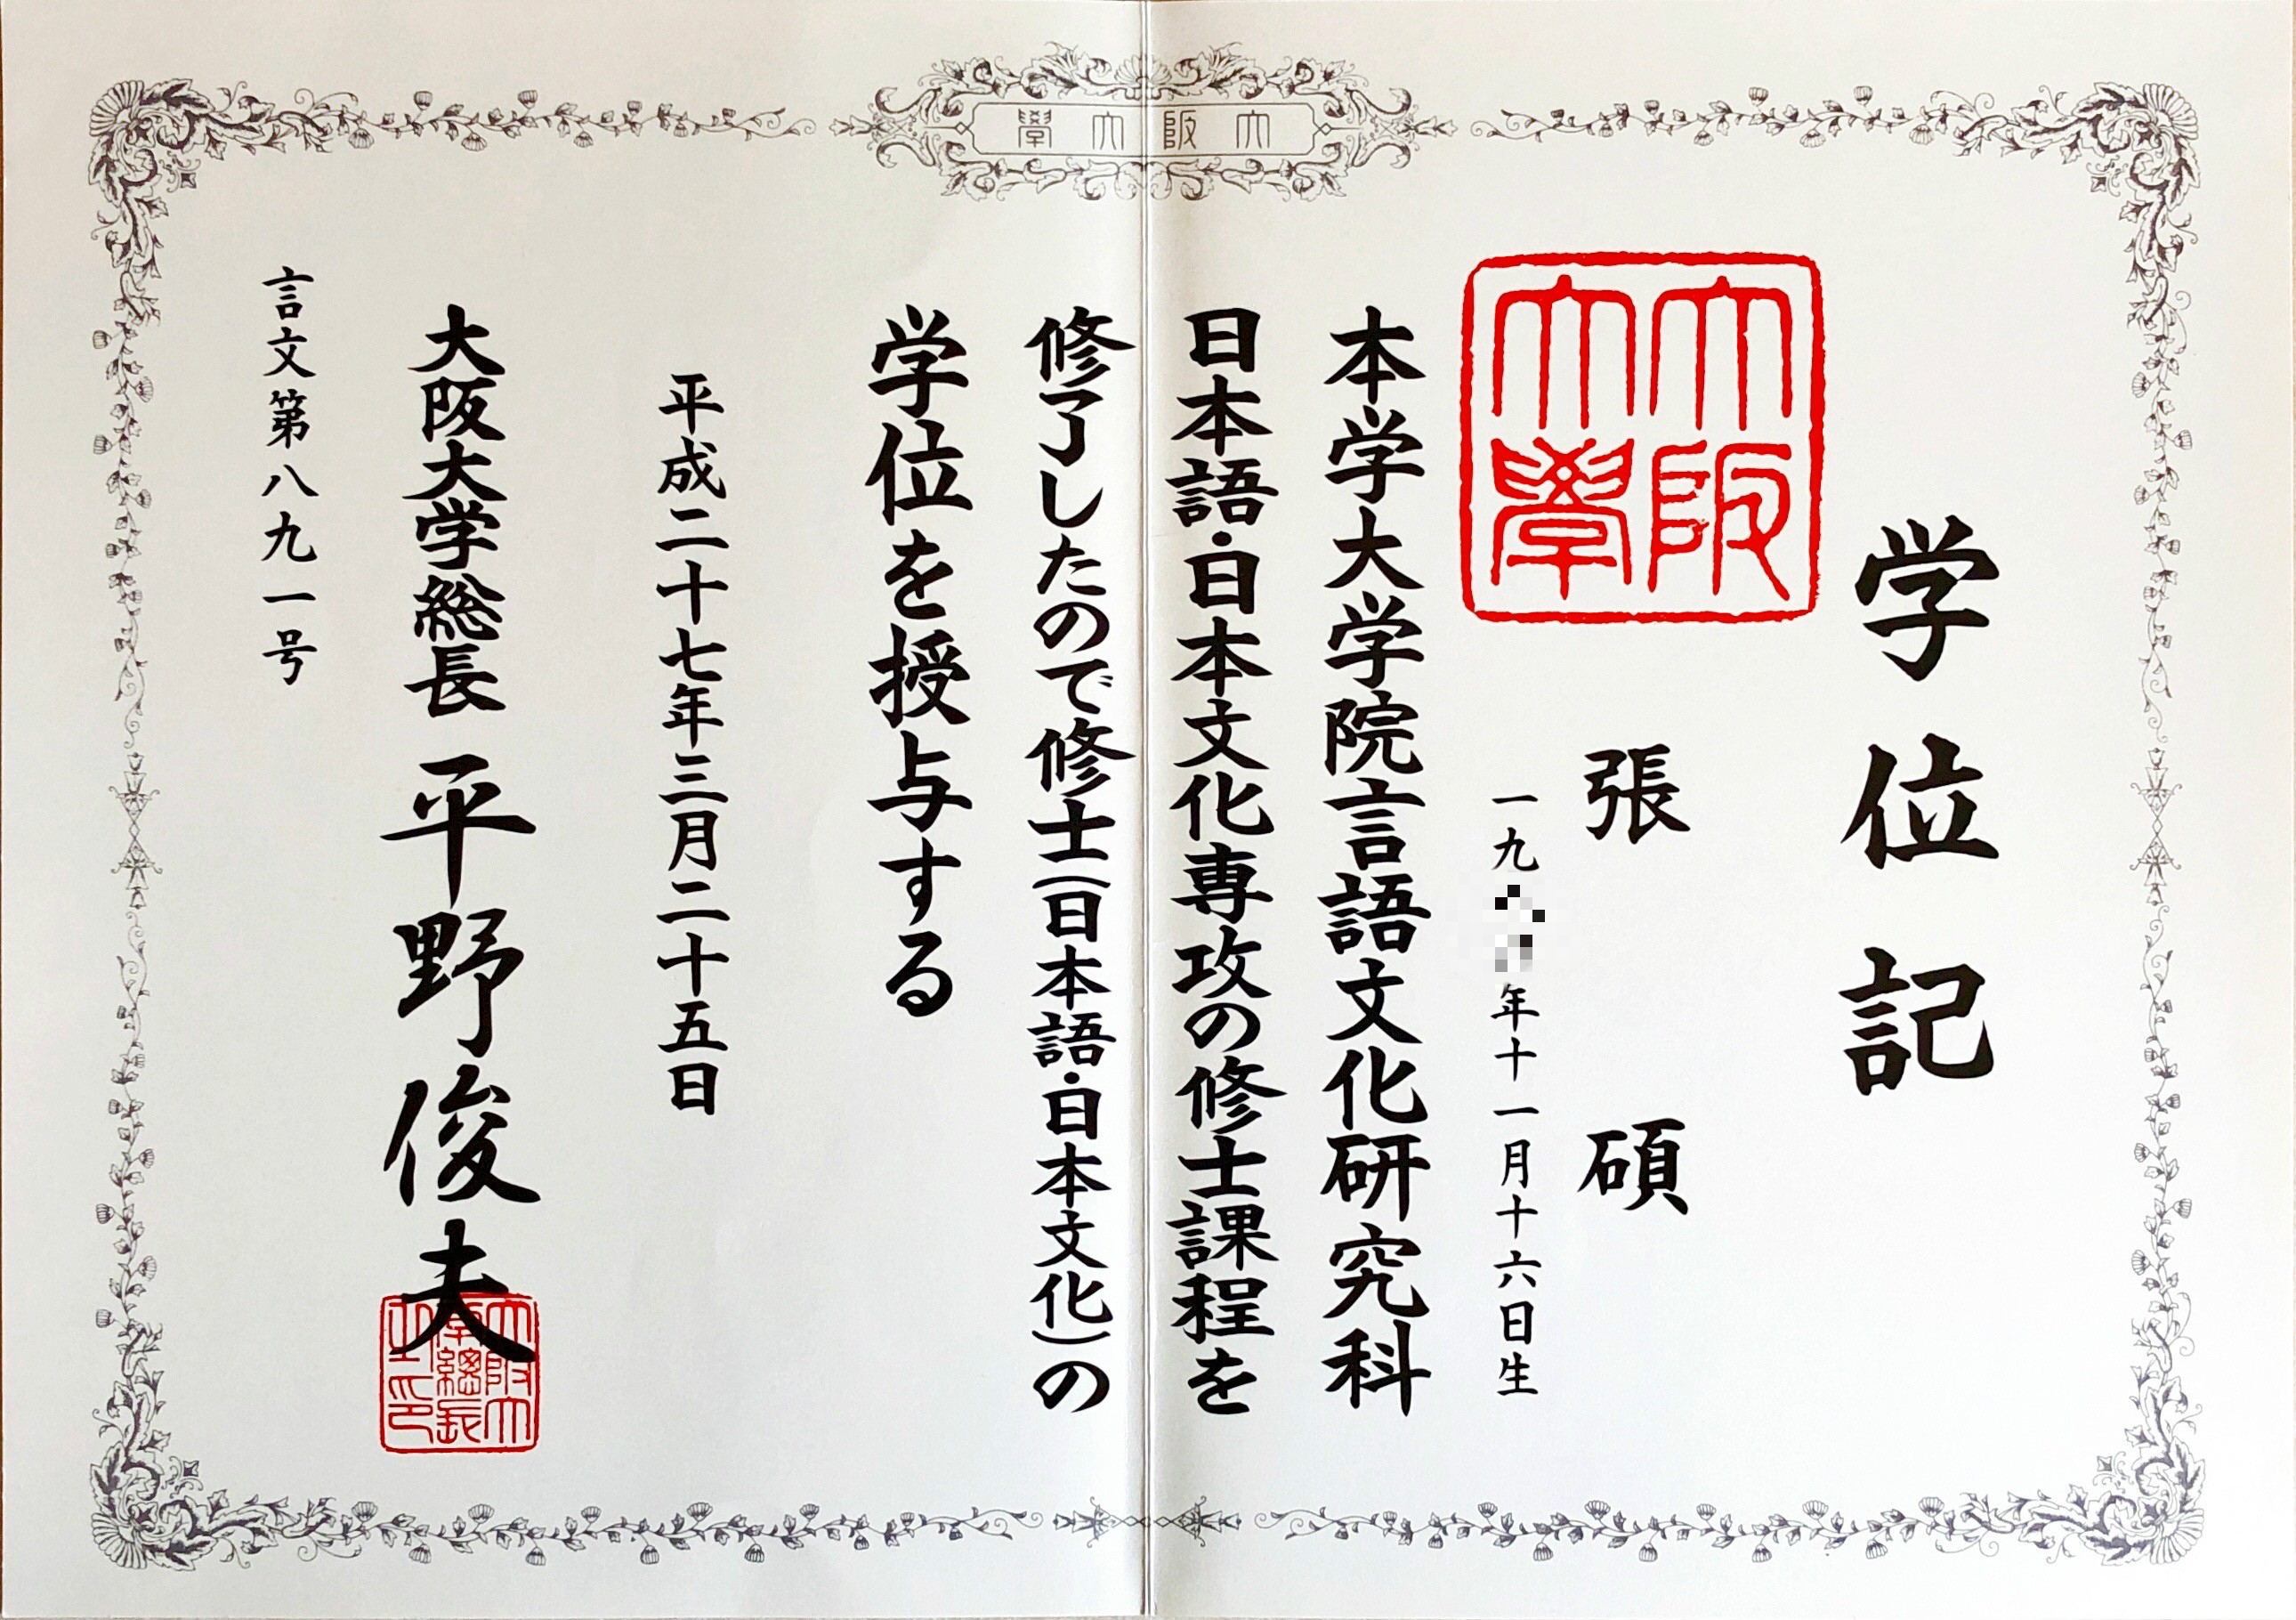 大阪大學
学位記
大阪大學
張 碩
一九 年十一月十六日生
本学大学院言語文化研究科
日本語・日本文化専攻の修士課程を
修了したので修士(日本語・日本文化)の
学位を授与する
平成二十七年三月二十五日
大阪大学総長 平野俊夫
大阪大學總長之印
言文第八九一号